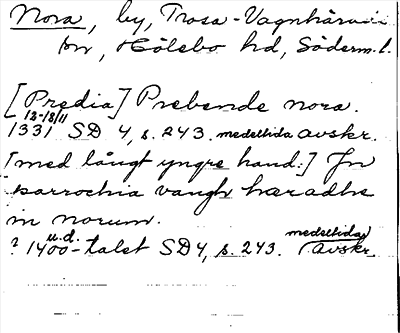 Nora, by, Trosa-Vagnhärads
sn, Hölebo hd, Söderm. l.
[Predia] Prebende nora.
12-18/11
1331 SD 4, s. 243. medeltida avskr.
[med långt yngre hand:] Jn
parrochia vangh hæradhe
in norum.
? 1400-talet u.d. SD 4, s. 243. medeltida avskr.